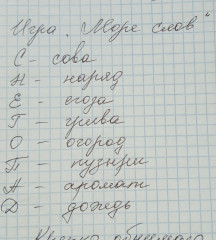 Игра „Море слов"
С - сова
Н - наряд
Е - егоза
Г - грива
О - огород
П - пузыри
А - аромат
Д - дождь
Крепко